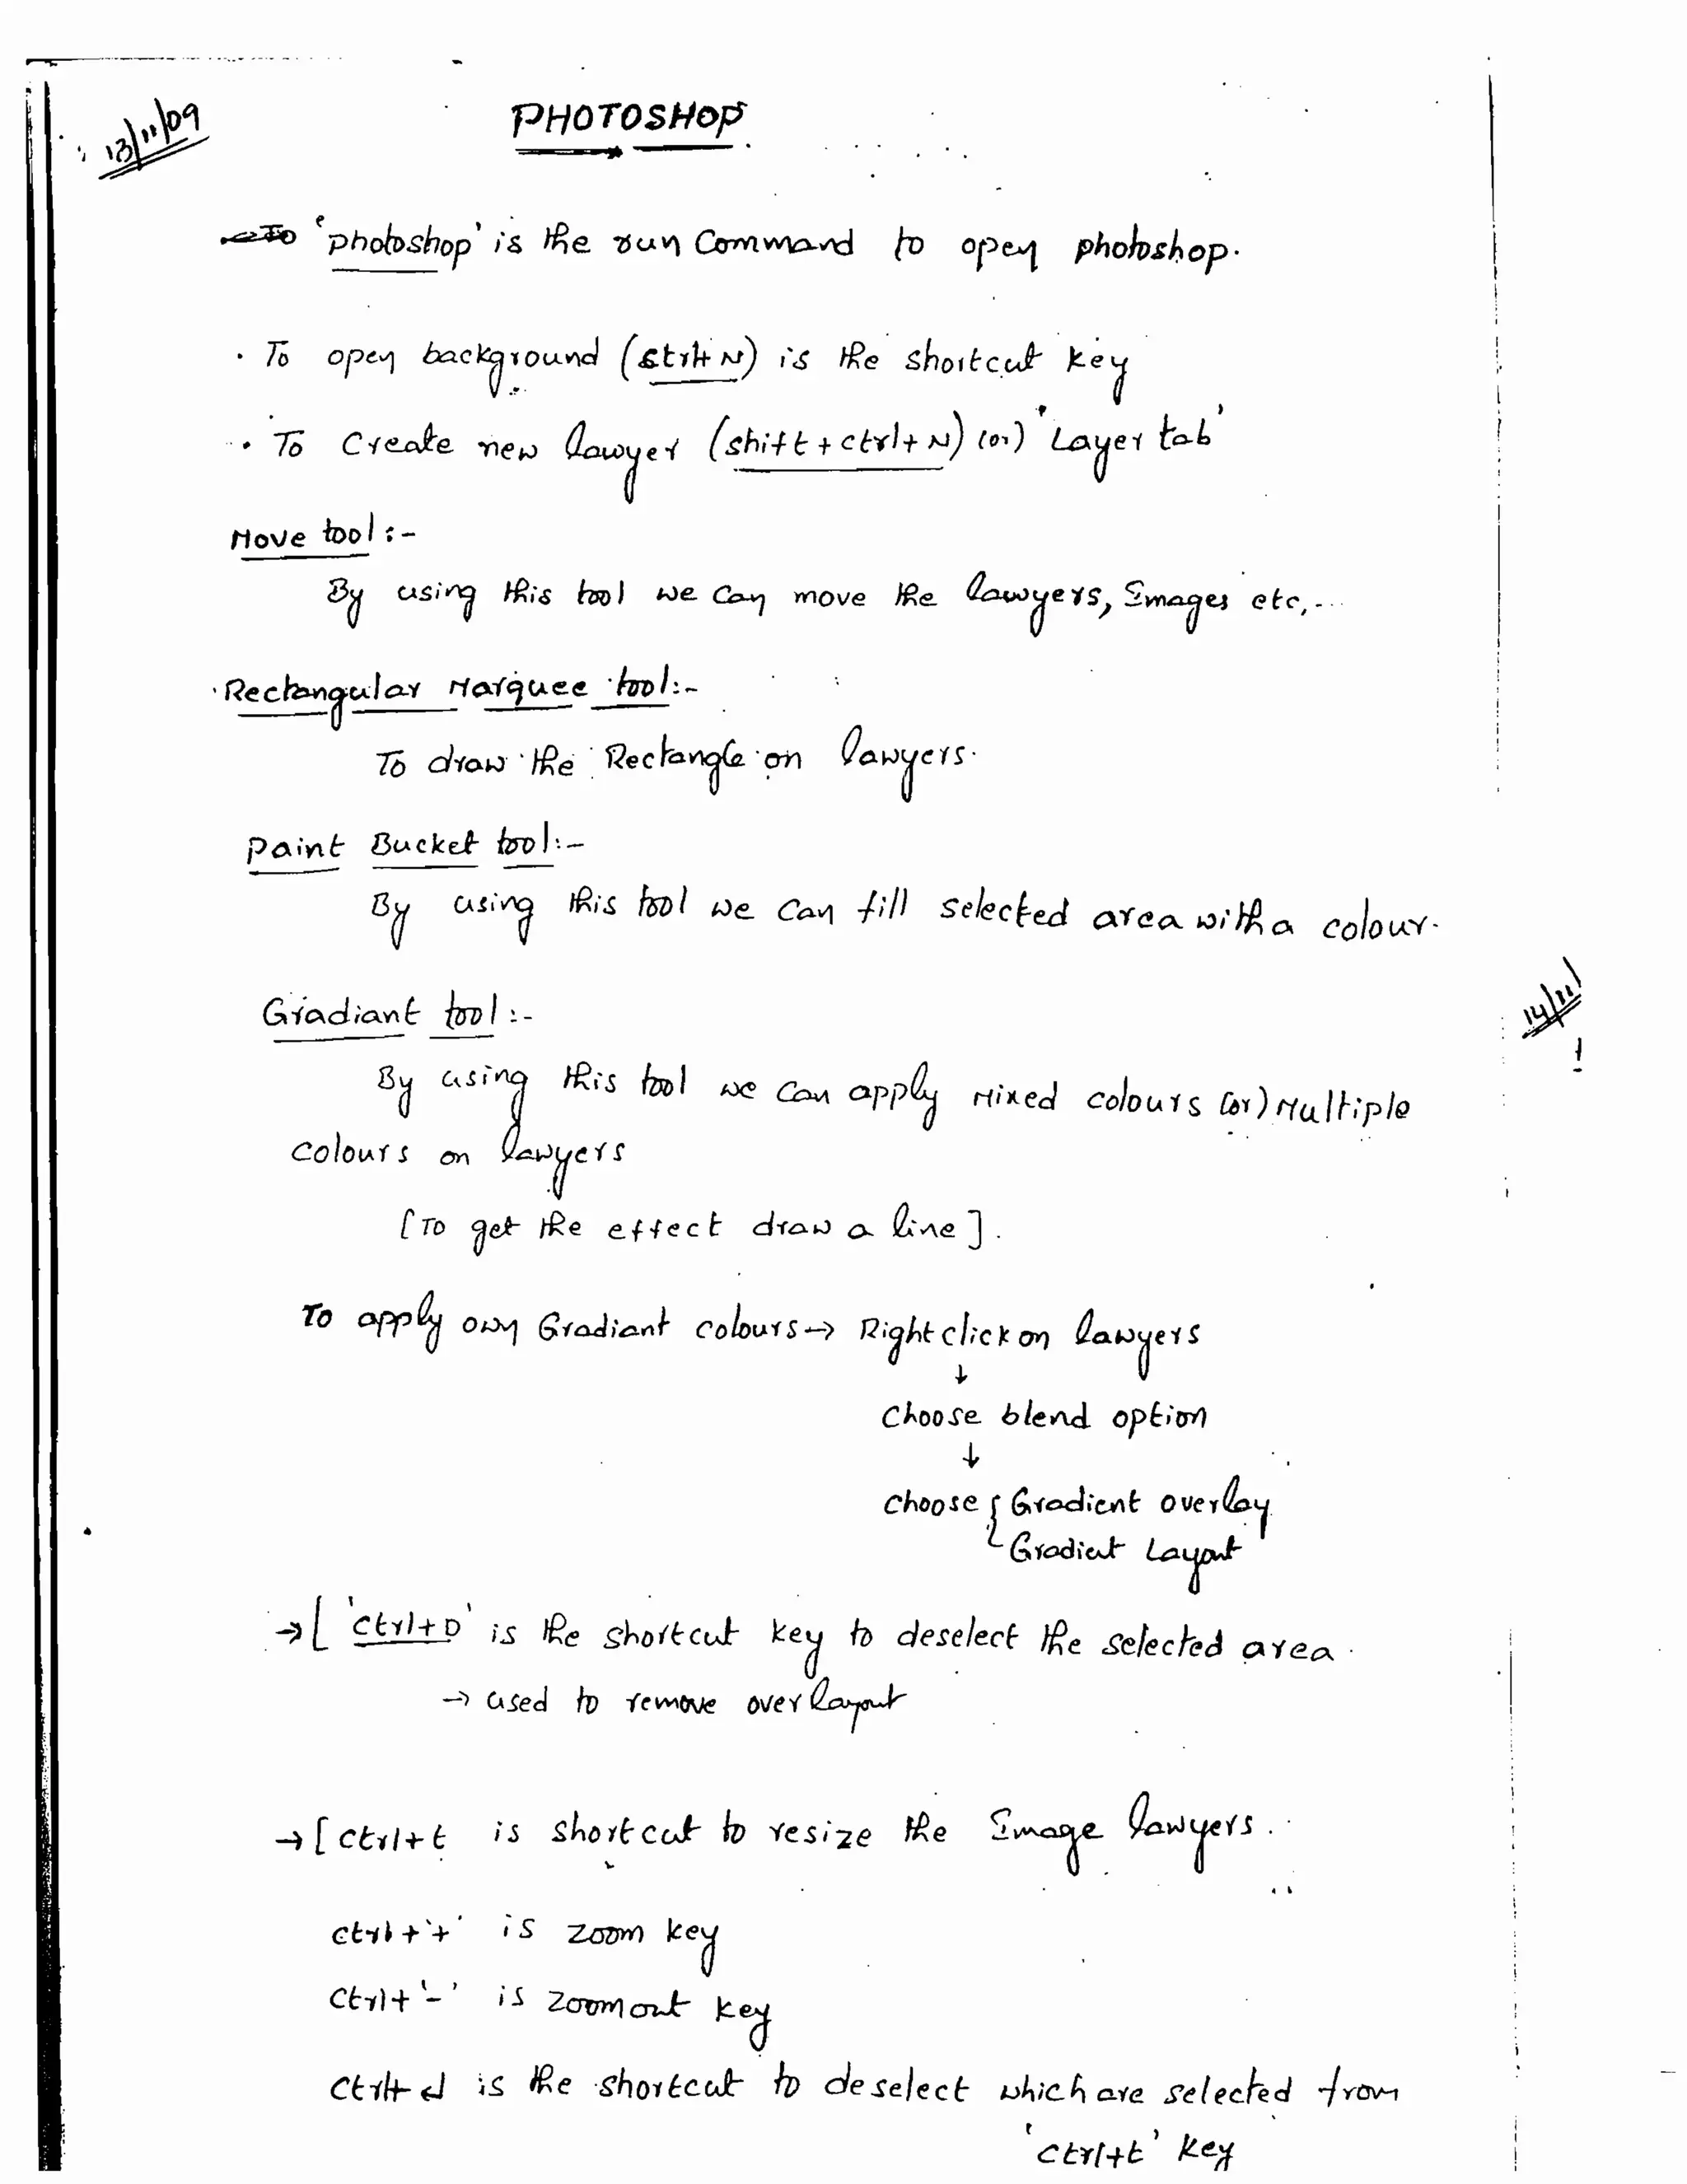 13/11/09
PHOTOSHOP
'photoshop' is the run Command to open photoshop.
• To open background (ctrl+N) is the shortcut key
• To Create new lawyer (shift+ctrl+N) (or) 'Layer tab'
Move tool:-
By using this tool we can move the lawyers, Images etc,...
Rectangular Marquee tool:-
To draw the Rectangle on lawyers.
Paint Bucket tool:-
By using this tool we can fill selected area with a colour.
14/11/
Gradiant tool:-
By using this tool we can apply Mixed colours (or) Multiple
colours on lawyers
[To get the effect draw a line].
To apply own Gradiant colours → Right click on lawyers
↓
Choose blend option
↓
choose { Gradient overlay
Gradient Layout
→ [ 'ctrl+D' is the shortcut key to deselect the selected area.
→ used to remove over layout
→ [ ctrl+t is shortcut to resize the Image lawyers.
ctrl+'+' is zoom key
ctrl+'-' is zoomout key
ctrl+d is the shortcut to deselect which are selected from
'ctrl+t' key